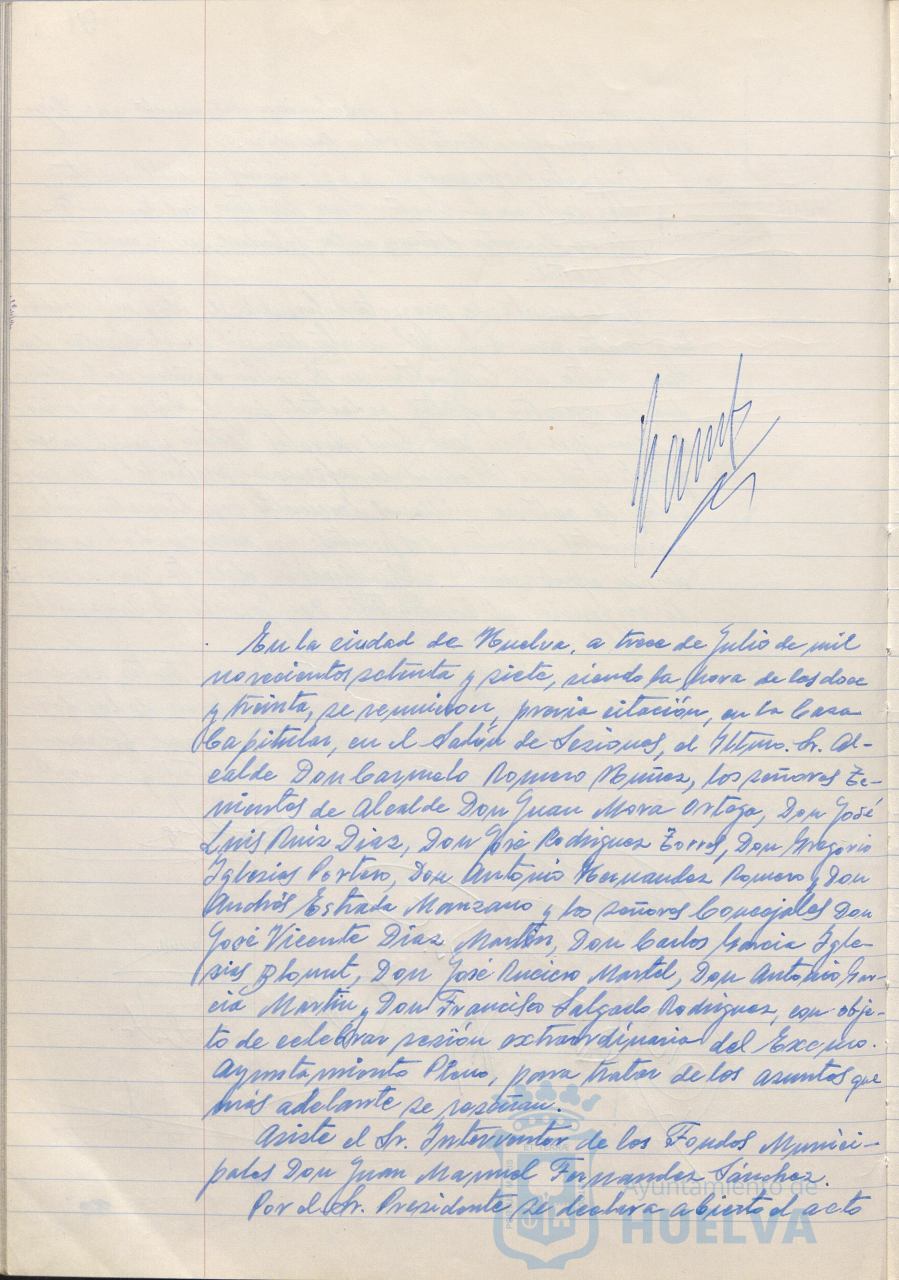 En la ciudad de Huelva, a trece de Julio de mil
novecientos setenta y siete, siendo la hora de las doce
y treinta, se reunieron, previa citación, en la Casa
Capitular, en el Salón de Sesiones, el Iltmo. Sr. Al-
calde Don Carmelo Romero Núñez, los señores Te-
nientes de Alcalde Don Juan Mora Ortega, Don José
Luis Ruiz Diaz, Don José Rodriguez Torres, Don Gregorio
Iglesias Portero, Don Antonio Hernandez Romero y Don
Andrés Estrada Manzano y los señores Concejales Don
José Vicente Diaz Martin, Don Carlos Garcia Igle-
sias Blount, Don José Martel, Don Antonio Gar-
cia Martin y Don Francisco Salgado Rodriguez, con obje-
to de celebrar sesión extraordinaria del Excmo.
Ayuntamiento Pleno, para tratar de los asuntos que
más adelante se reseñan.
Asiste el Sr. Interventor de los Fondos Munici-
pales Don Juan Manuel Fernandez Sánchez.
Por el Sr. Presidente se declara abierto el acto
Ayuntamiento de
HUELVA